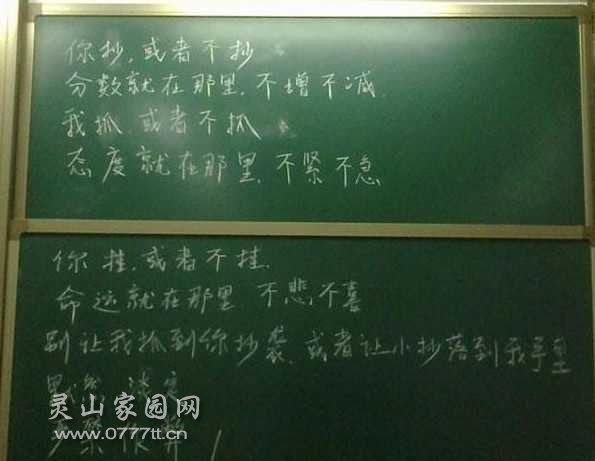 你抄,或者不抄
分数就在那里,不增不减
我抓,或者不抓
态度就在那里,不紧不急
你挂,或者不挂.
命运就在那里 不悲不喜
别让我抓到你抄袭,或者让小抄落到我手里
默然 淡定
严禁作弊!
灵山家园网
www.0777tt.cn